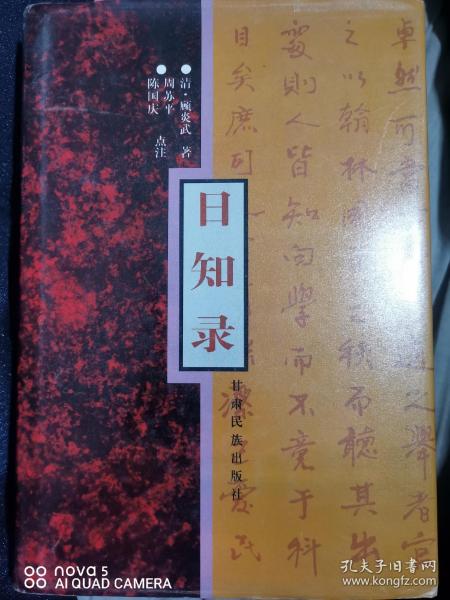 卓然可之舉者
之以翰林之秩而聽其出
處則人皆知向學而不竞于科
目矣庶可
●清·顾炎武 著
●周苏平
陈国庆 点注
日知录
甘肃民族出版社
nova 5
AI QUAD CAMERA
孔夫子旧书网
www.kongfz.com